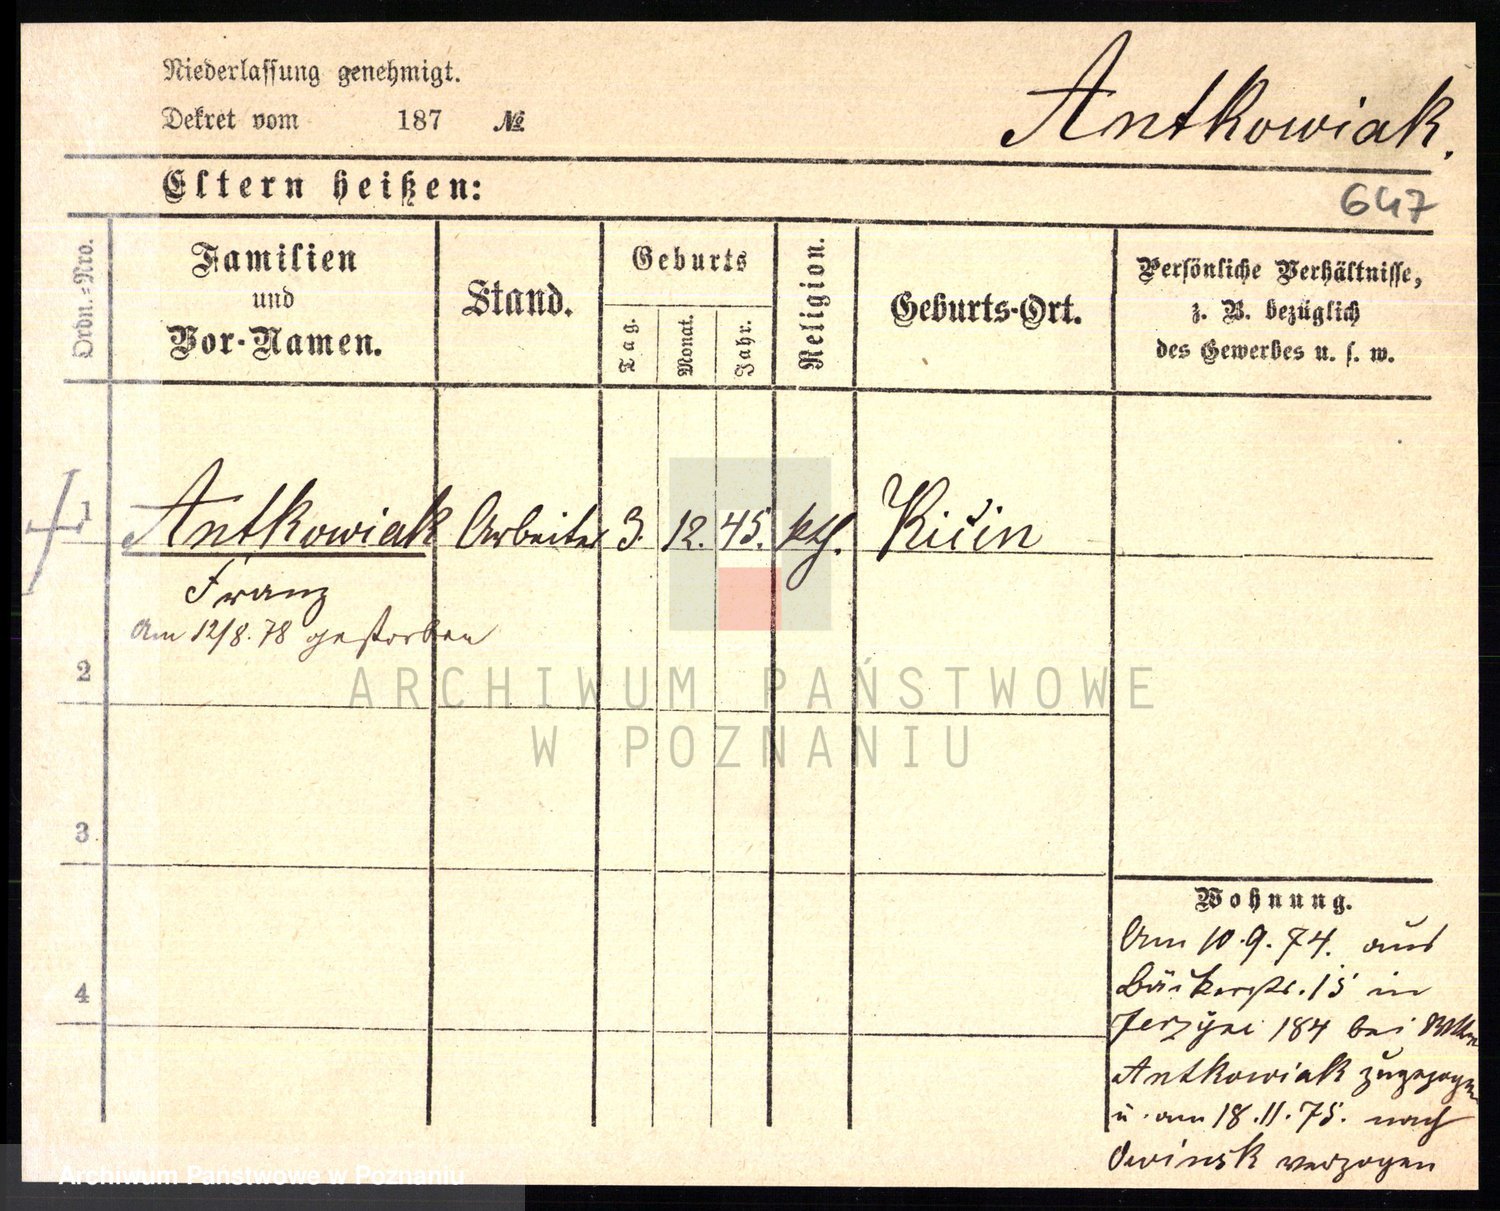 Niederlassung genehmigt.
Dekret vom 187 №
Antkowiak.
647
Eltern heißen:
Ordn.=Nro.
Familien
und
Vor-Namen.
Stand.
Geburts
Tag.
Monat.
Jahr.
Religion.
Geburts-Ort.
Persönliche Verhältnisse,
z. B. bezüglich
des Gewerbes u. s. w.
1 Antkowiak Arbeiter 3. 12. 45. kth. Kicin
Franz
Am 12/8. 78 gestorben
2
ARCHIWUM PAŃSTWOWE
W POZNANIU
3
Wohnung.
Am 10.9.74. aus
Bäckerstr. 15 in
4
184 bei
Antkowiak zugezogen
u. am 18.11.75. nach
Owinsk verzogen
Archiwum Państwowe w Poznaniu